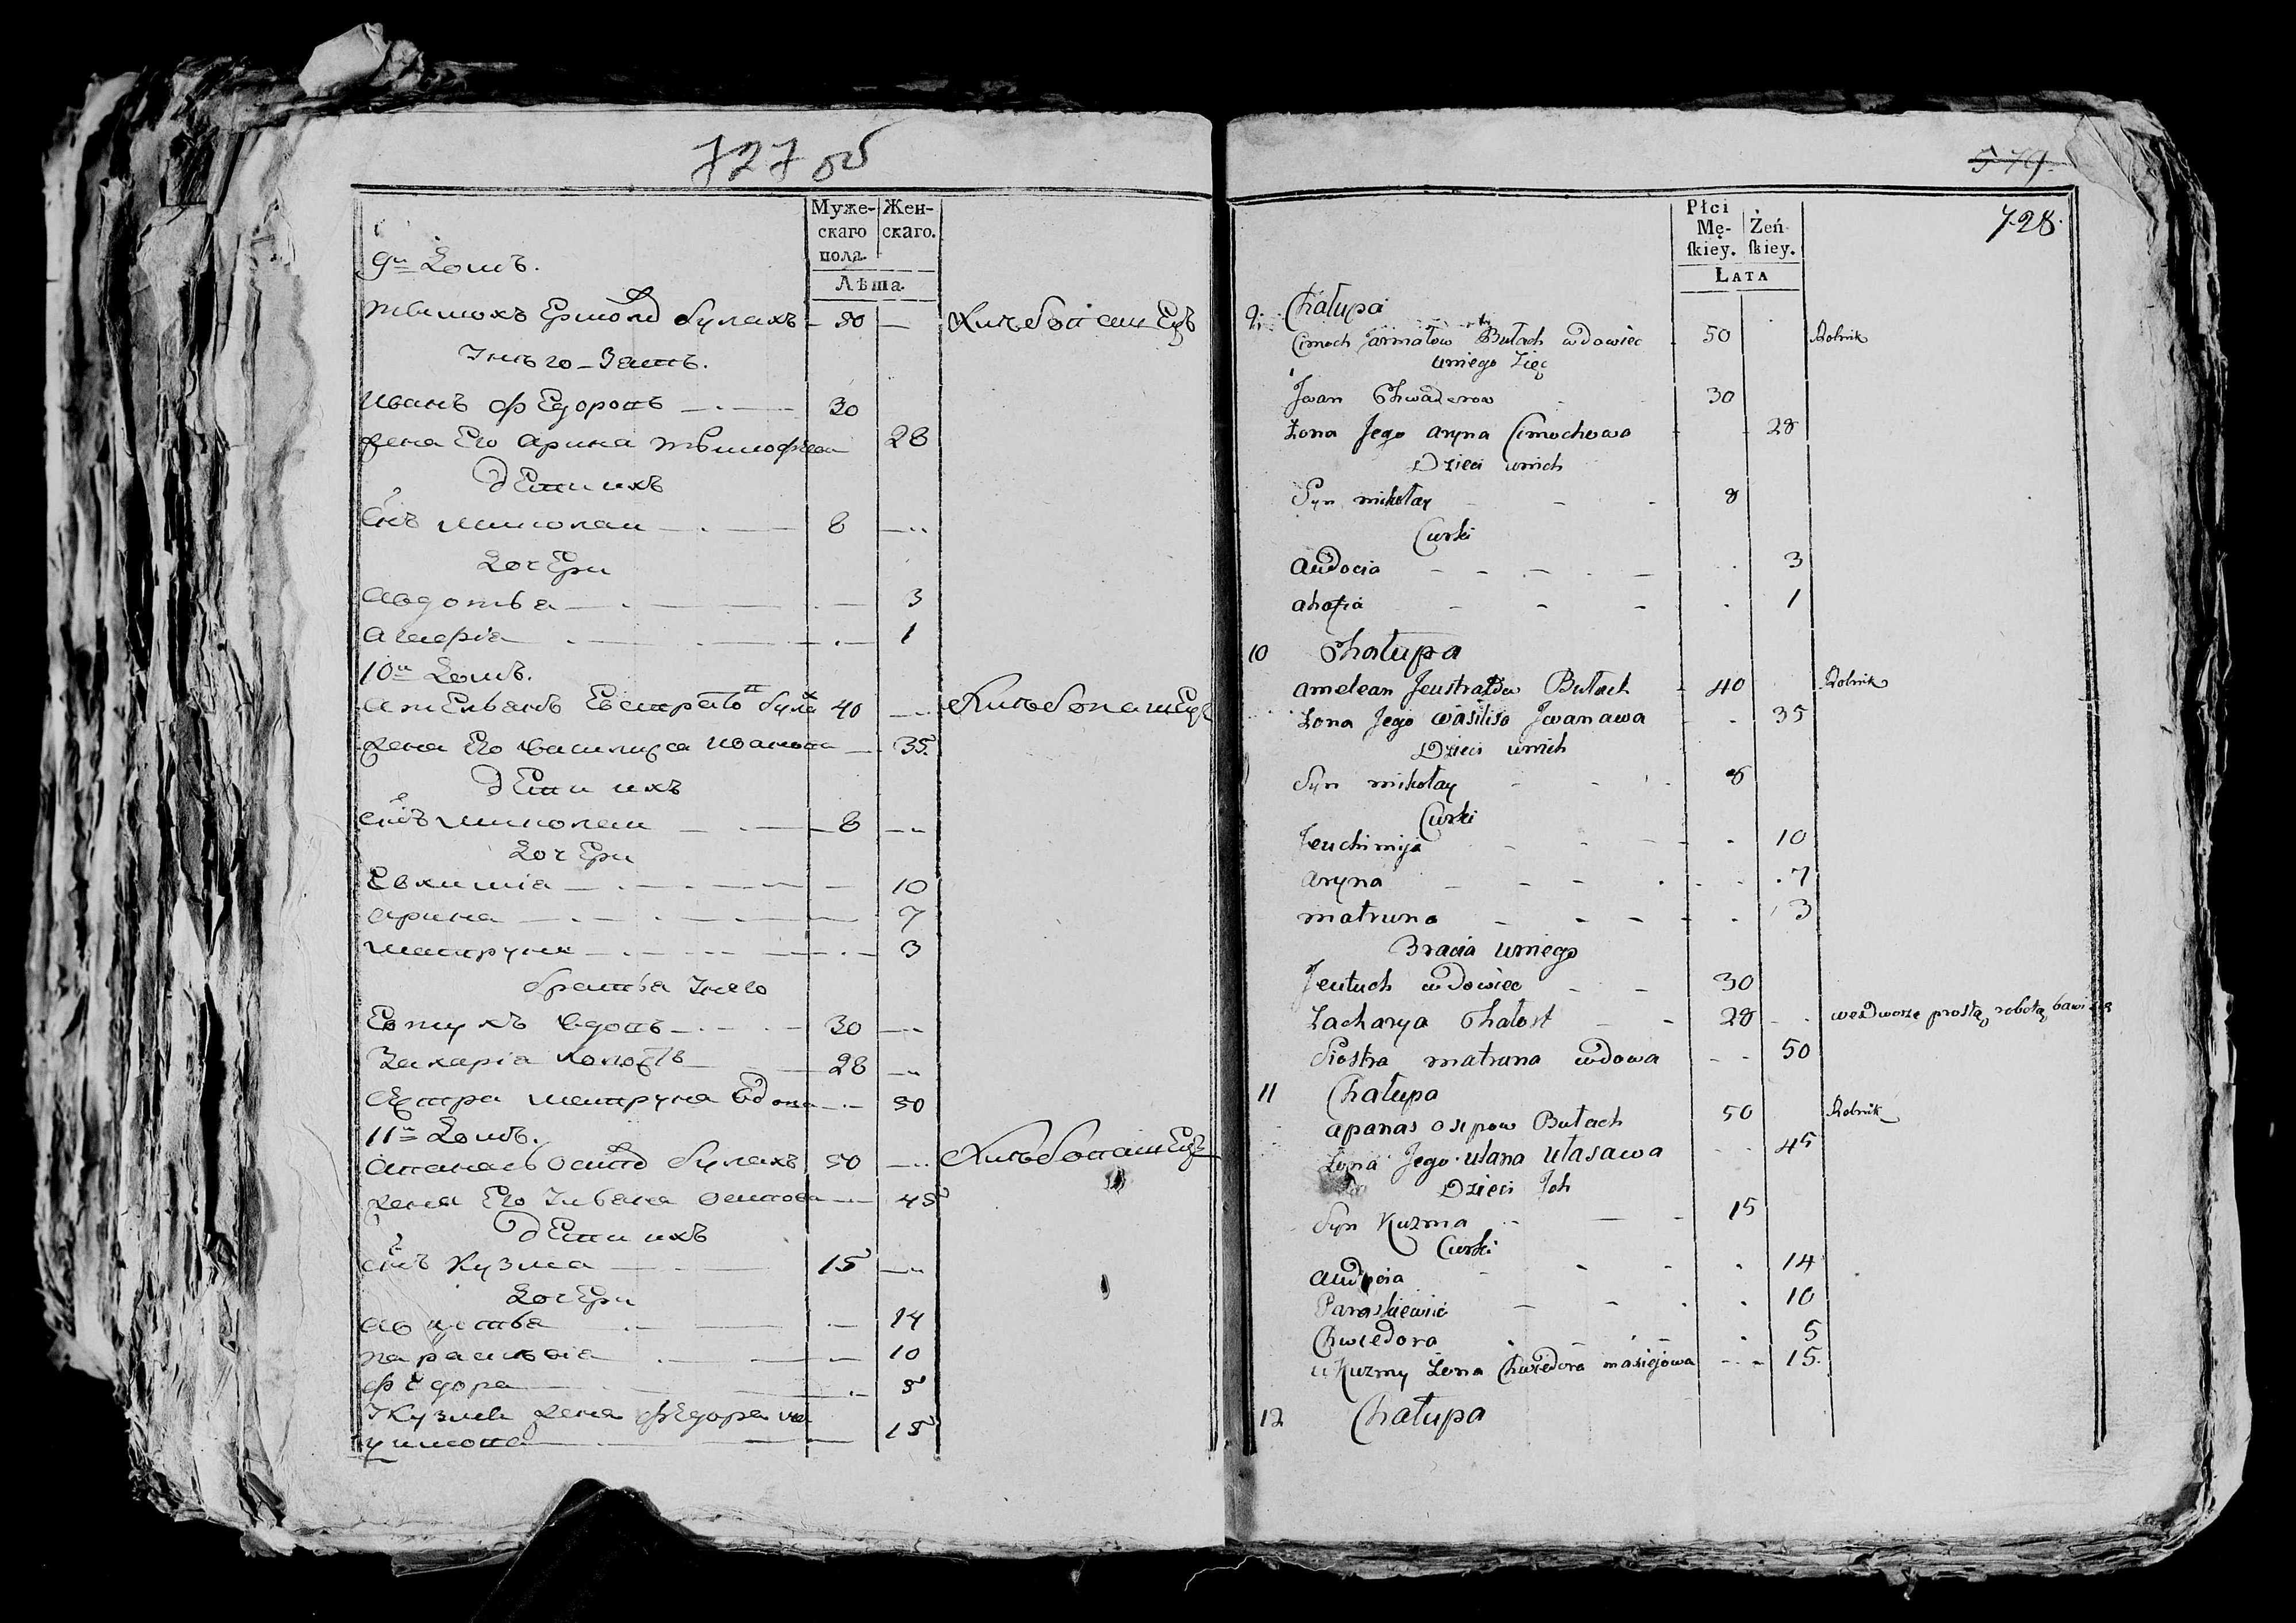 727 об
Муже-
скаго
пола.
Жен-
скаго.
Лѣта.
9й Домъ.
Тимохъ Ермолов Булахъ 50 Хлѣбопашецъ
У него Зять.
Иванъ Федоровъ 30
жена Его Арина Тимофеева 28
дети ихъ
Сн҃ъ Миколаи 8
Дочери
Авдотья 3
Агафія 1
10й Домъ.
Амельянъ Евстратов Була 40 Хлѣбопашецъ
жена Его Василиса Иванова 35
дети ихъ
Сн҃ъ Миколаи 8
Дочери
Евхимія 10
Арина 7
Матруна 3
братья у него
Евтухъ вдовъ 30
Захарія холостъ 28
Сестра Матруна вдова 50
11й Домъ.
Апанасъ Осипов Булахъ 50 Хлѣбопашецъ
жена Его Ульяна Осипова 45
дети ихъ
Сн҃ъ Кузма 15
Дочери
14
Параскевия 10
Федора 5
У Кузмы жена Федора 15
579.
728.
Płci
Mę-
ſkiey.
Żeń
ſkiey.
LATA
9. Chałupa
Cimoch Jarmałow Bułach wdowiec 50 Rolnik
uniego Zięc
Jwan Chwaderow 30
Żona Jego Aryna Cimochowa 28
Dzieci unich
Syn mikołay 8
Curki
Audocia 3
ahafia 1
10 Chałupa
amelean Jeustratow Bułach 40 Rolnik
Żona Jego Wasilisa Jwanawa 35
Dzieci unich
Syn mikołay 8
Curki
Jeuchimija 10
Aryna 7
matruna 3
Bracia uniego
Jeutuch wdowiec 30
Zacharya Chałost 28 weDworze prostą robotą bawi się
Siostra matruna wdowa 50
11 Chałupa
apanas osipow Bułach 50 Rolnik
Żona Jego ulana ułasawa 45
Dzieci Jch
Syn Kuzma 15
Curki
Audocia 14
Paraskiewia 10
Chwiedora 5
u Kuzmy Żona Chwiedora masiejowa 15
12 Chałupa